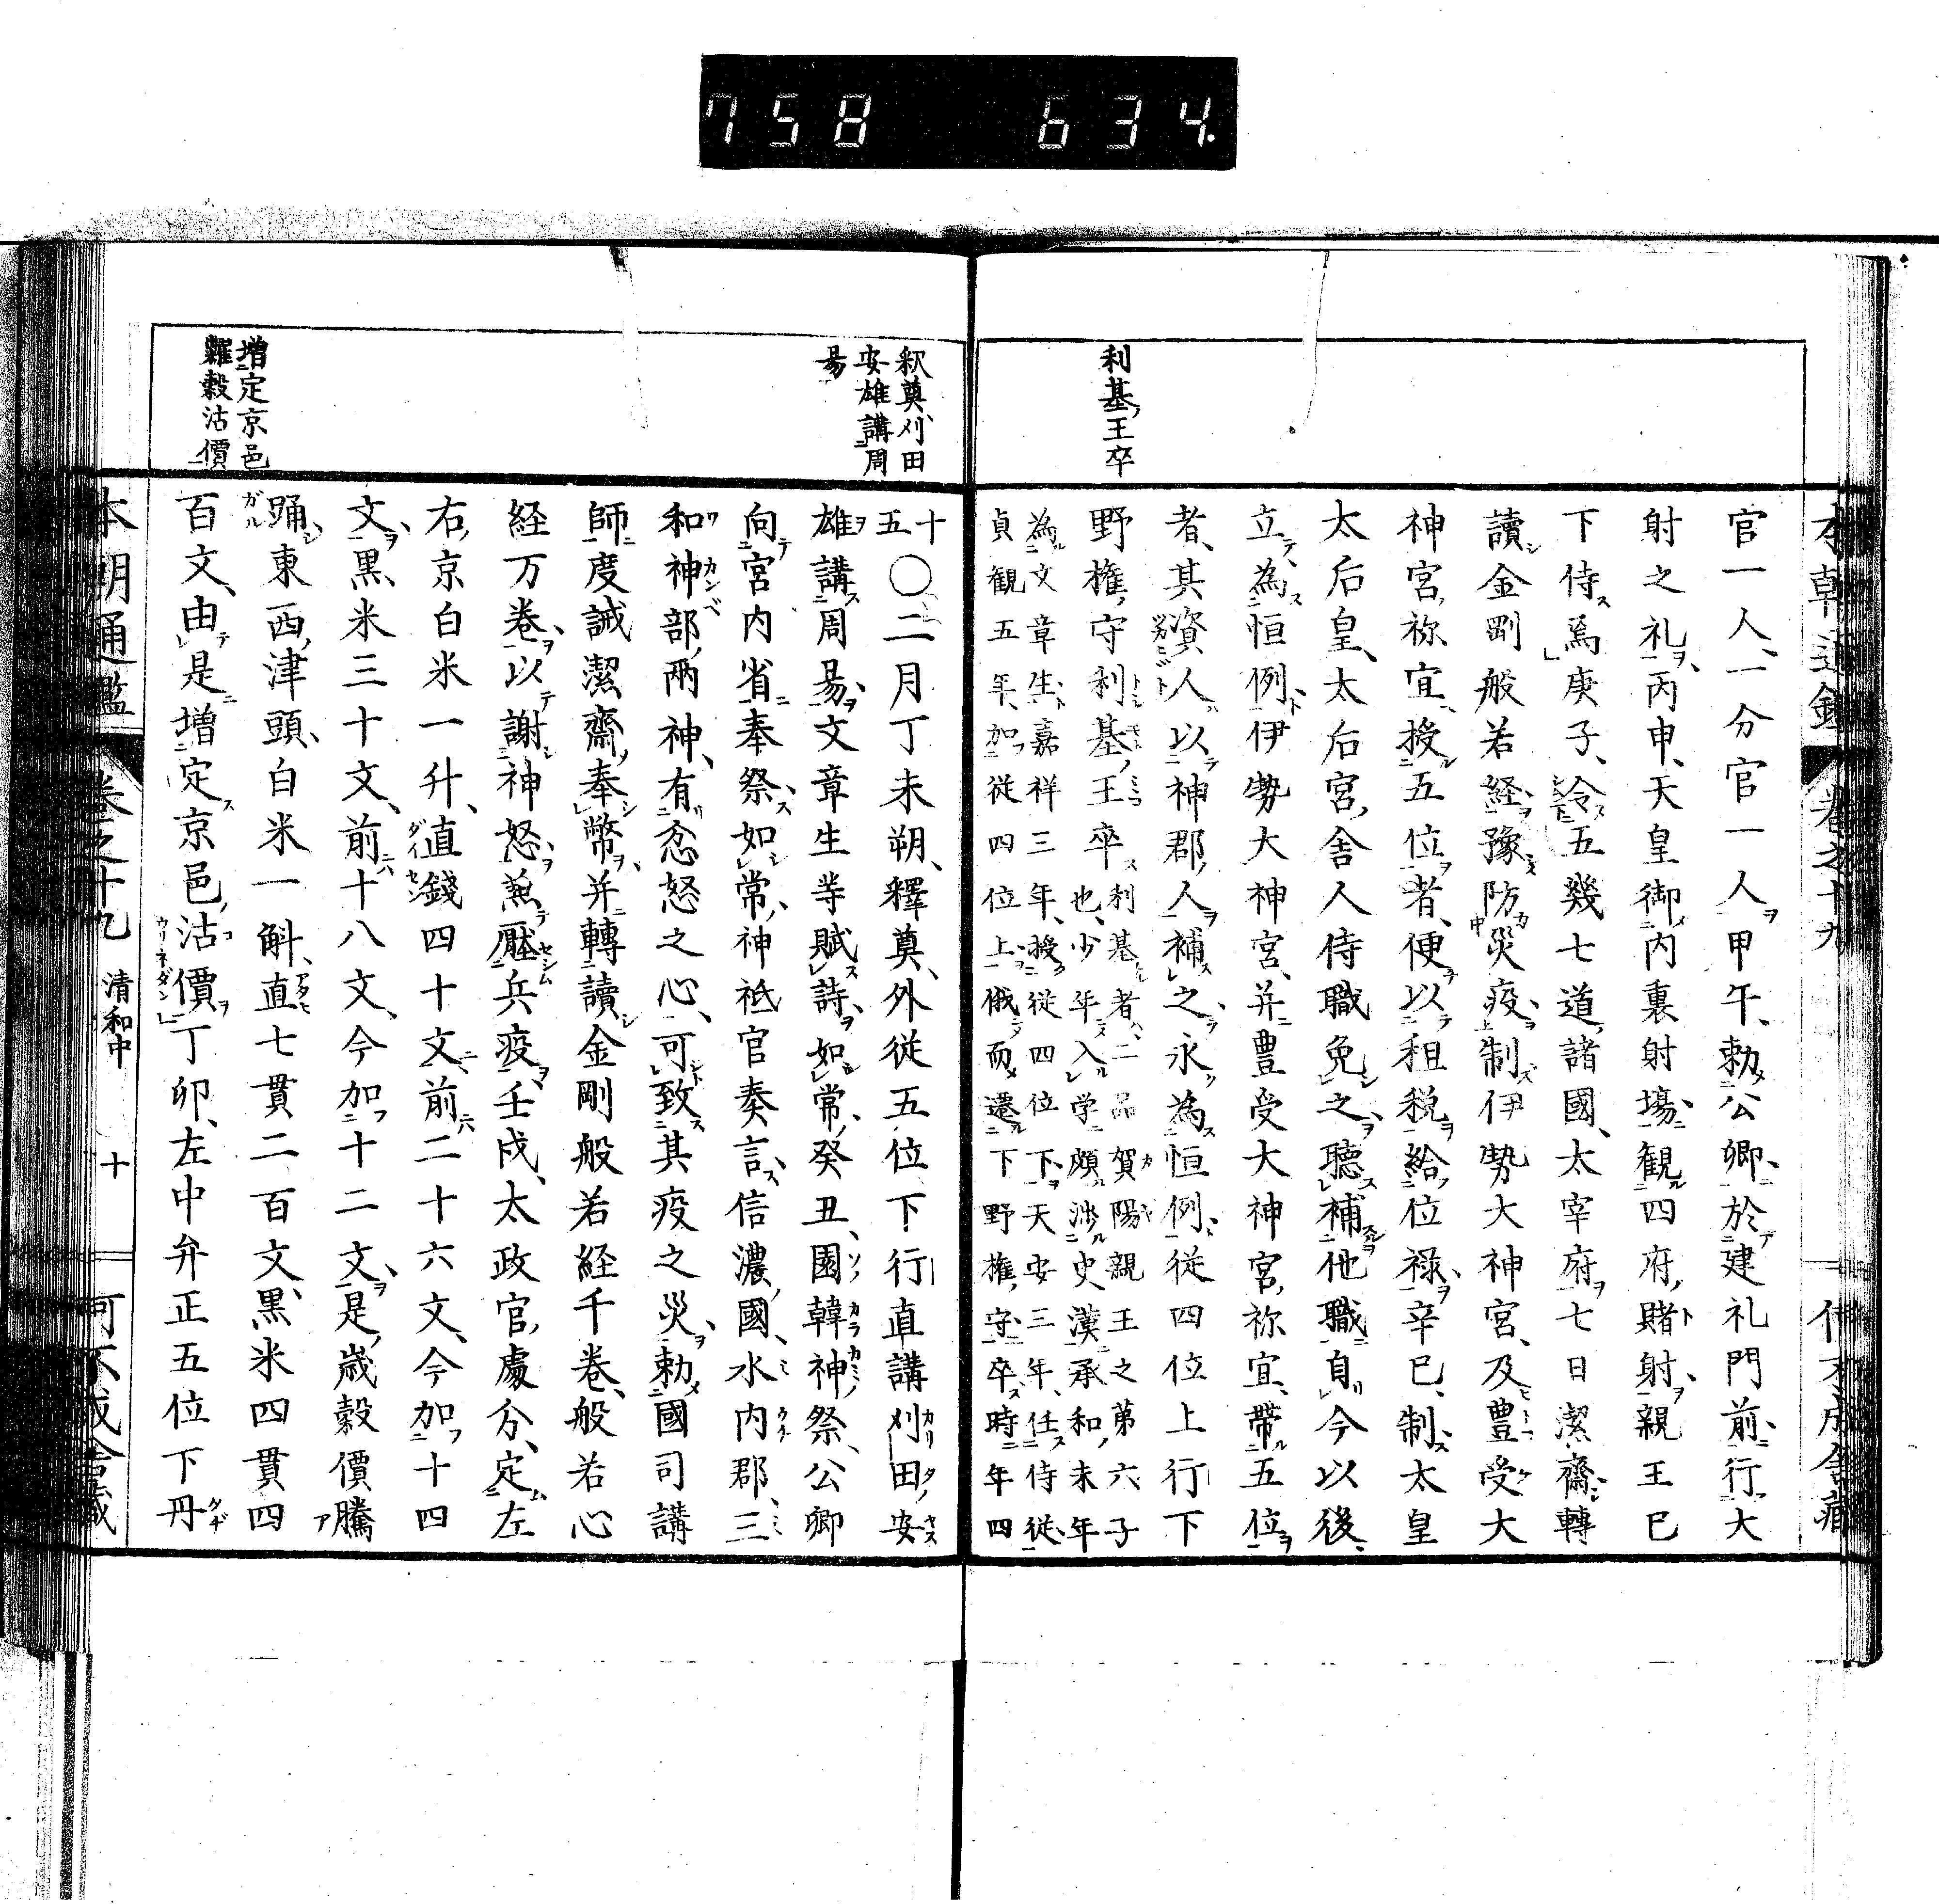 758 634.
利基王卒
官一人、一分官一人甲午、勅公卿於建礼門前行大
射之礼丙申、天皇御内裏射場観四府賭射親王已
下侍焉庚子、令五幾七道諸國、太宰府七日潔齋轉
讀金剛般若経豫防災疫制伊勢大神宮、及豊受大
神宮祢宜授五位者、便以租税給位禄辛巳、制太皇
太后皇、太后宮舎人侍職免之聴補他職自今以後、
立為恒例伊勢大神宮、并豊受大神宮祢宜、帶五位
者、其資人以神郡人補之永為恒例従四位上行下
野権守利基王卒利基者、二品賀陽親王之第六子
也、少年入学頗渉史漢承和末年
為文章生、嘉祥三年、授従四位下天安三年、任侍従
貞観五年、加従四位上俄而遷下野権守卒時年四
十五
釈奠、刈田
安雄講周
易
増定京邑
糶穀沽價
〇二月丁未朔、釋奠、外従五位下行直講刈田安
雄講周易文章生等賦詩如常、癸丑、園韓神祭、公卿
向宮内省奉祭如常、神祇官奏言信濃國、水内郡、三
和神部兩神、有忿怒之心、可致其疫之災勅國司講
師度誠潔齋奉幣并轉讀金剛般若経千巻、般若心
経万巻以謝神怒兼壓兵疫壬戌、太政官處分、定左
右京白米一升、直錢四十文前二十六文、今加十四
文、黒米三十文、前十八文、今加十二文是歳穀價騰
踊東西津頭、白米一斛、直七貫二百文、黒米四貫四
百文、由是増定京邑沽價丁卯、左中弁正五位下丹
本朝通鑑 巻之十九 清和中 十